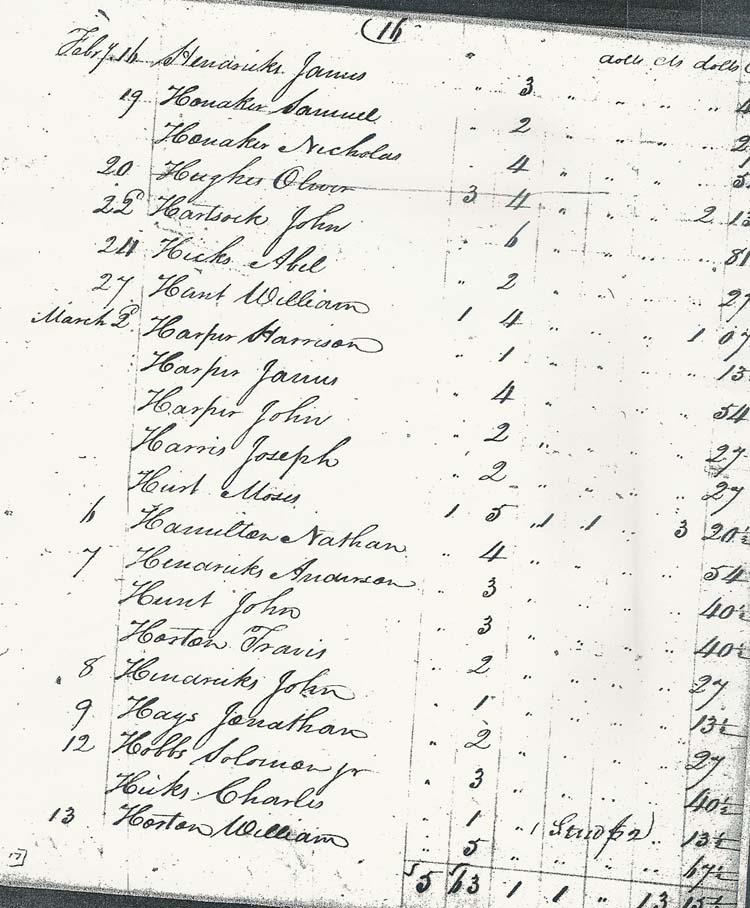 16
dolls cts dolls
Febry 16 Hendricks James " 3 " " " "
19 Honaker Samuel " 2 " " " "
Honaker Nicholas " 4 " " " "
20 Hughes Oliver 3 4 " " 2 13
22d Hartsock John " 6 " " " " 81
24 Hicks Abel " 2 " " " " 27
27 Hunt William 1 4 " " " 1 07
March 2d Harper Harrison " 1 " " " " 13
Harper James " 4 " " " " 54
Harper John " 2 " " " " 27
Harris Joseph " 2 " " " " 27
Hurt Moses 1 5 1 1 3 20½
6 Hamilton Nathan " 4 " " " " 54
7 Hendricks Anderson " 3 " " " " 40½
Hunt John " 3 " " " " 40½
Horton Travis " 2 " " " " 27
8 Hendricks John " 1 " " " " 13½
9 Hays Jonathan " 2 " " " " 27
12 Hobbs Solomon jr " 3 " " " " 40½
Hicks Charles " 1 " " 13½
13 Horton William " 5 " " " " 67½
5 63 1 1 " 13 15½